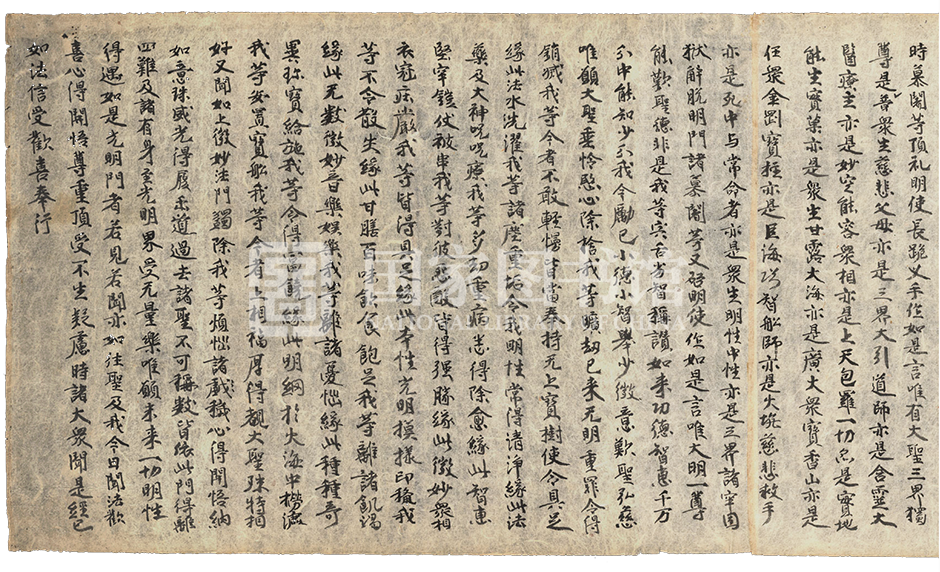 時慕闍等頂礼明使長跪叉手作如是言唯有大聖三界獨
尊是普衆生慈悲父母亦是三界大引道師亦是含靈大
醫療主亦是妙空能容衆相亦是上天包羅一切亦是實地
能生寶菓亦是衆生甘露大海亦是廣大衆寶香山亦是
任衆金剛寶柱亦是巨海巧智船師亦是火坑慈悲救手
亦是死中与常命者亦是衆生明性中性亦是三界諸牢固
獄解脫明門諸慕闍等又啓明使作如是言唯大明一尊
能歎聖德非是我等宍舌劣智稱讚如来功德智惠千万
分中能知少分我今勵己小德小智舉少微意歎聖弘慈
唯願大聖垂怜愍心除捨我等曠劫已来无明重罪令得
銷滅我等今者不敢輕慢皆當奉持无上寶樹使令具足
緣此法水洗濯我等諸塵重垢令我明性常得清淨緣此法
藥及大神呪呪療我等多劫重病悉得除愈緣此智惠
堅牢鎧仗被串我等對彼怨敵皆得强勝緣此微妙衆相
衣冠庄嚴我等皆得具足緣此本性光明摸樣印稱我
等不令散失緣此甘膳百味飲食飽足我等離諸飢渴
緣此无數微妙音樂娛樂我等離諸憂惱緣此種種奇
異珍寶給施我等令得富饒緣此明網於大海中撈漉
我等安置寶船我等今者上相福厚得覩大聖殊特相
好又聞如上微妙法門蠲除我等煩惱諸穢心得開悟納
如意珠威光得履正道過去諸聖不可稱數皆依此門得離
四難及諸有身至光明界受无量樂唯願未来一切明性
得遇如是光明門者若見若聞亦如往聖及我今日聞法歡
喜心得開悟尊重頂受不生疑慮時諸大衆聞是經已
如法信受歡喜奉行
國家圖書館
NATIONAL LIBRARY OF CHINA